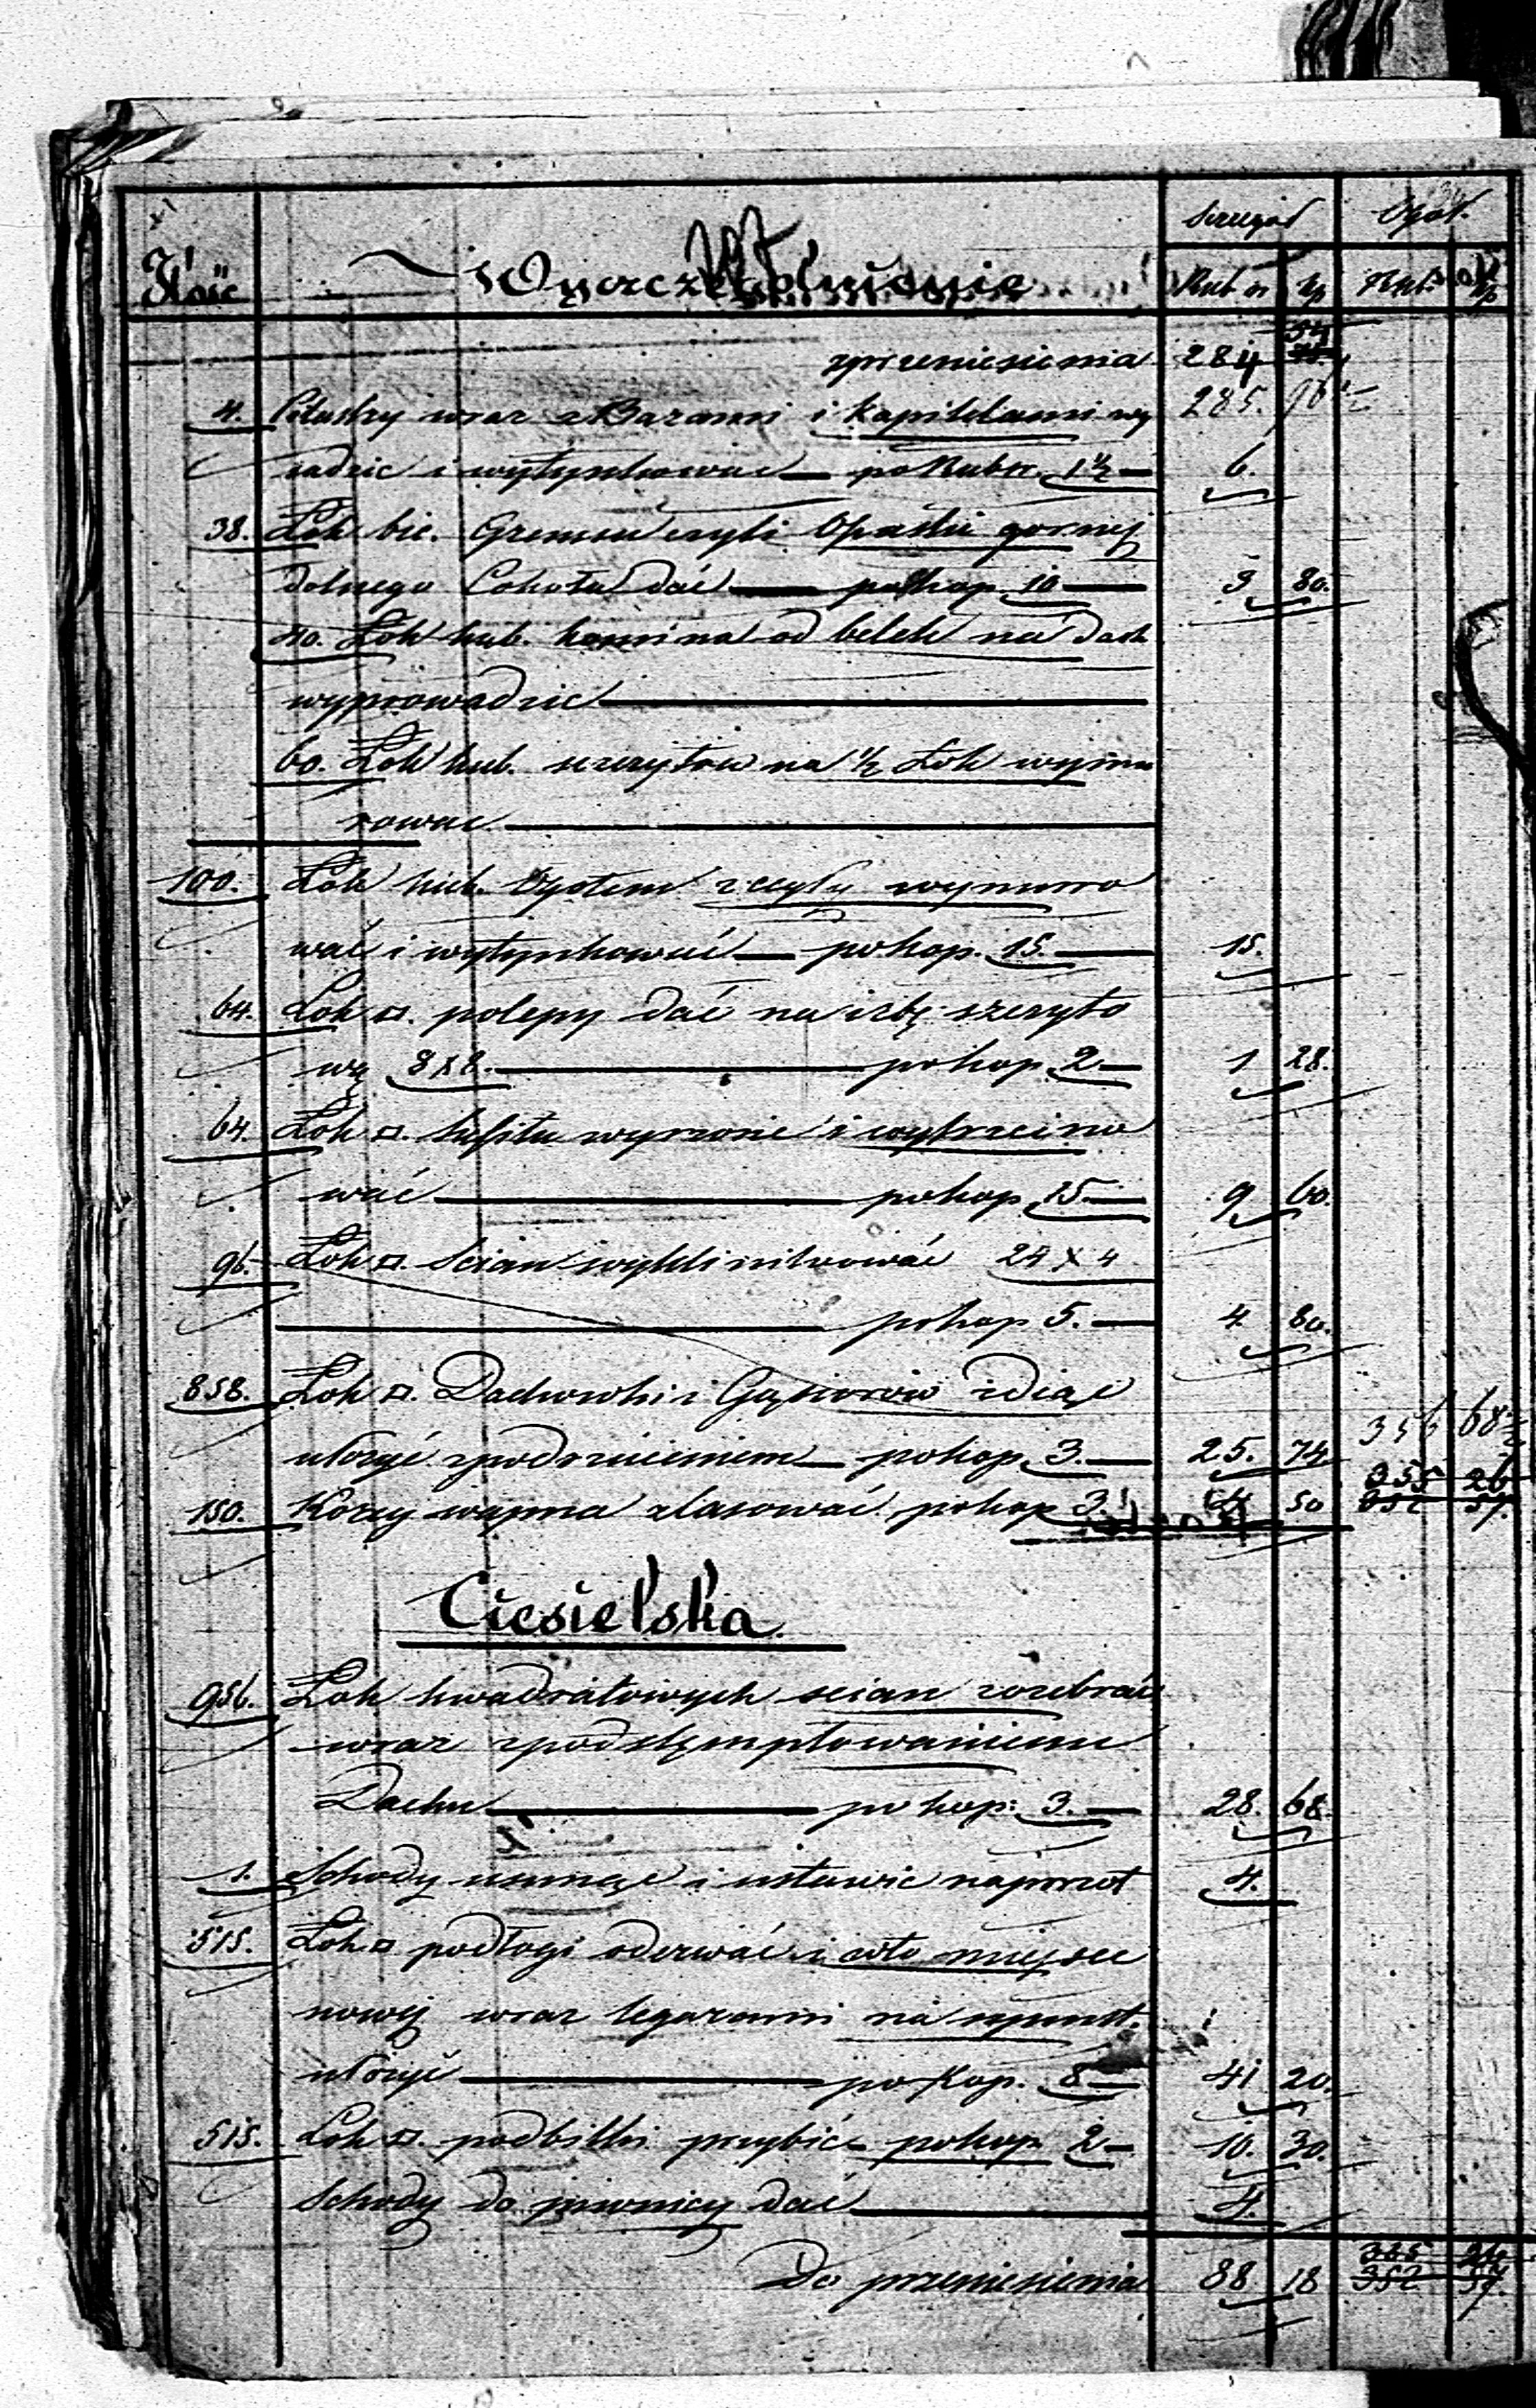 Szczegół Ogół.
Ilość Wyszczególnienie Rub sr kp Rub. kp
zprzeniesienia 284
285. 96½
4. Pilastry wraz z Bazami i kapitelami wy
sadzic i wytynkowac — po Rubsr. 1½ — 6.
38. Łok bie. Gzemsu czyli Opaski gornej
dolnego Cokołu dać — po kop. 10 — 3 80.
40. Łok kub. komina od belek na dach
wyprowadzic —
60. Łok kub. szczytow na ½ Łok wymu
rowac —
100. Łok kub. Ogołem z cegły wymuro
wać i wytynkować — po kop. 15. — 15.
64. Łok □. polepy dać na izbę szczyto
wą 8 X 8. — po kop 2 — 1 28.
64. Łok □. sufitu wyrzucic i wytrzcino
wać — po kop 15 — 9 60.
96. Łok □. Scian 24 X 4
— po kop 5. — 4 80.
858. Łok □. Dachowki i Gąsiorow zdiąć
ułozyć zpodrzuceniem — po kop 3. — 25. 74 356 68½
355 26
352 57.
150. Korcy wapna zlasować po kop 3. 4 50
Ciesielska.
956. Łok kwadratowych scian rozebrać
wraz zpodstęmplowaniem
Dachu — po kop: 3. — 28. 68
1. Schody usunąc i ustawic napowrot 4.
515. Łok □ podłogi oderwać i wto miejsce
nowej wraz legarami na szpunt.
ułozyć — po Kop. 8 — 41 20.
515. Łok □. podbitki przybić po kop 2 — 10. 30.
Schody do piwnicy dać — 4.
Do przeniesienia 88 18 355 26
352 57.